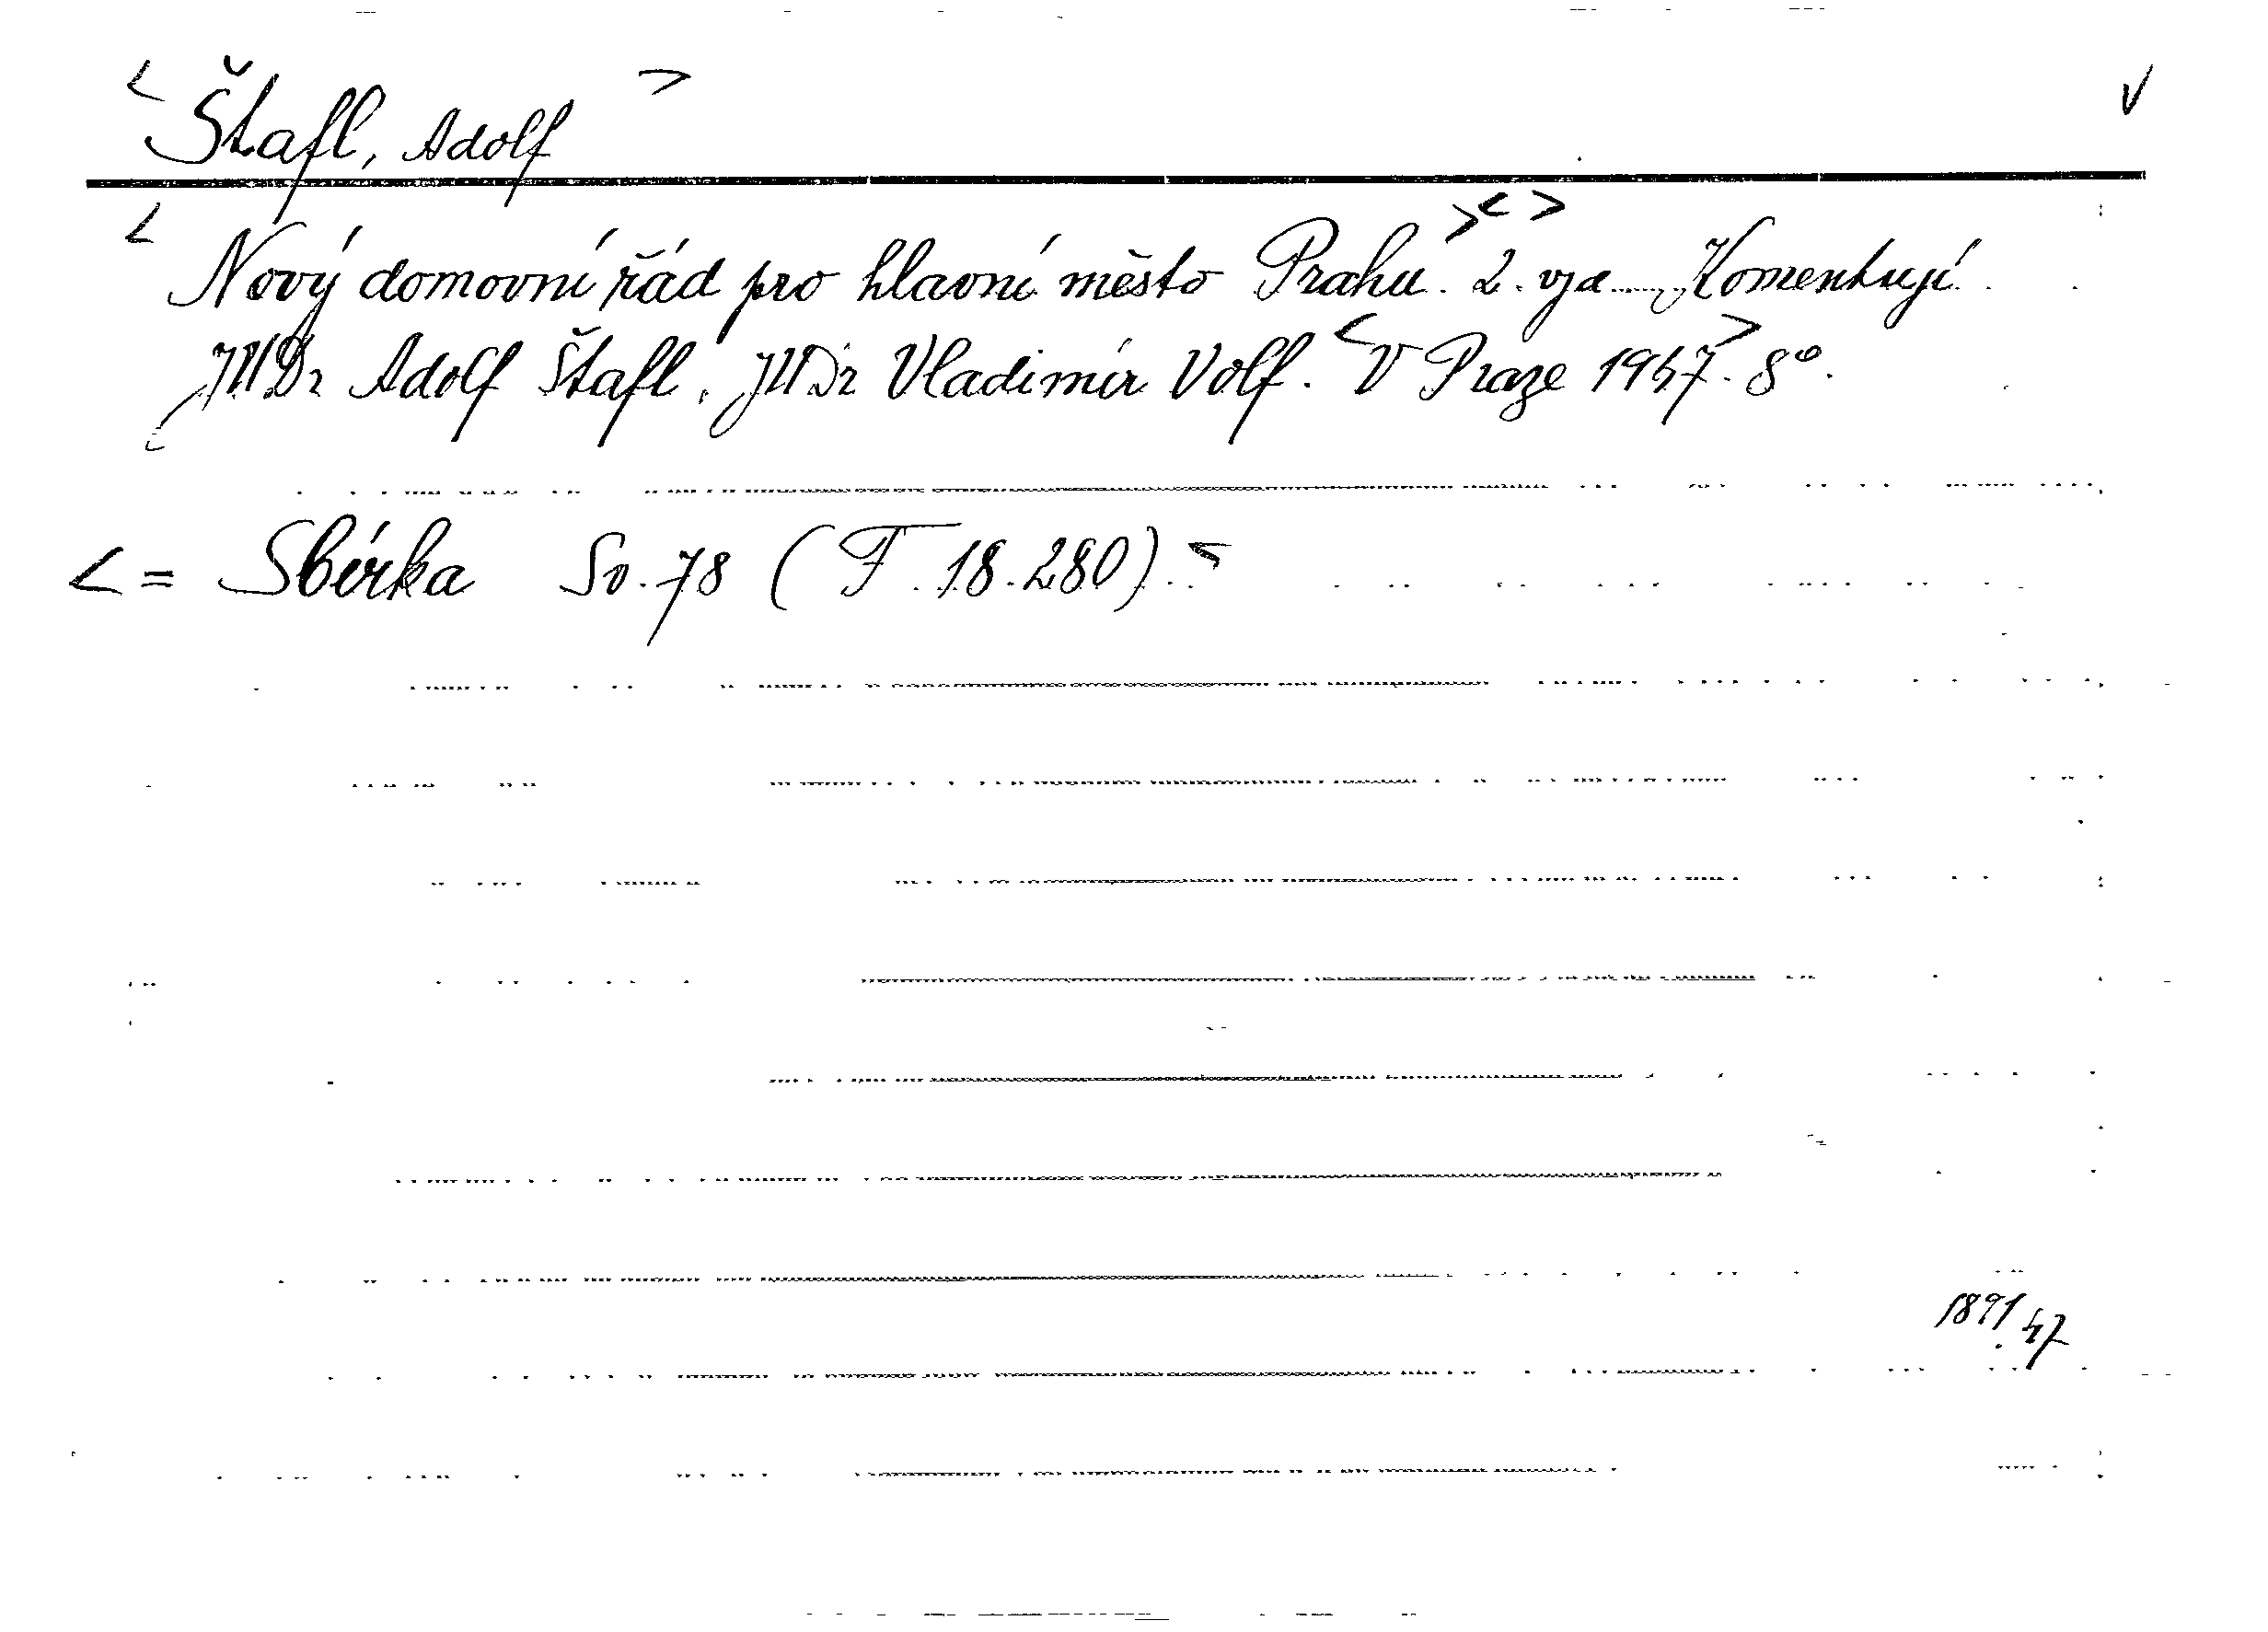 < Štafl, Adolf > V
< Nový domovní řád pro hlavní město Prahu. >< > 2. vyd. Komentují
JUDr Adolf Štafl, JUDr Vladimír Volf. < V Praze 1947. > 8°.
< = Sbírka Sv. 78 (F 18.280). <
1891/47